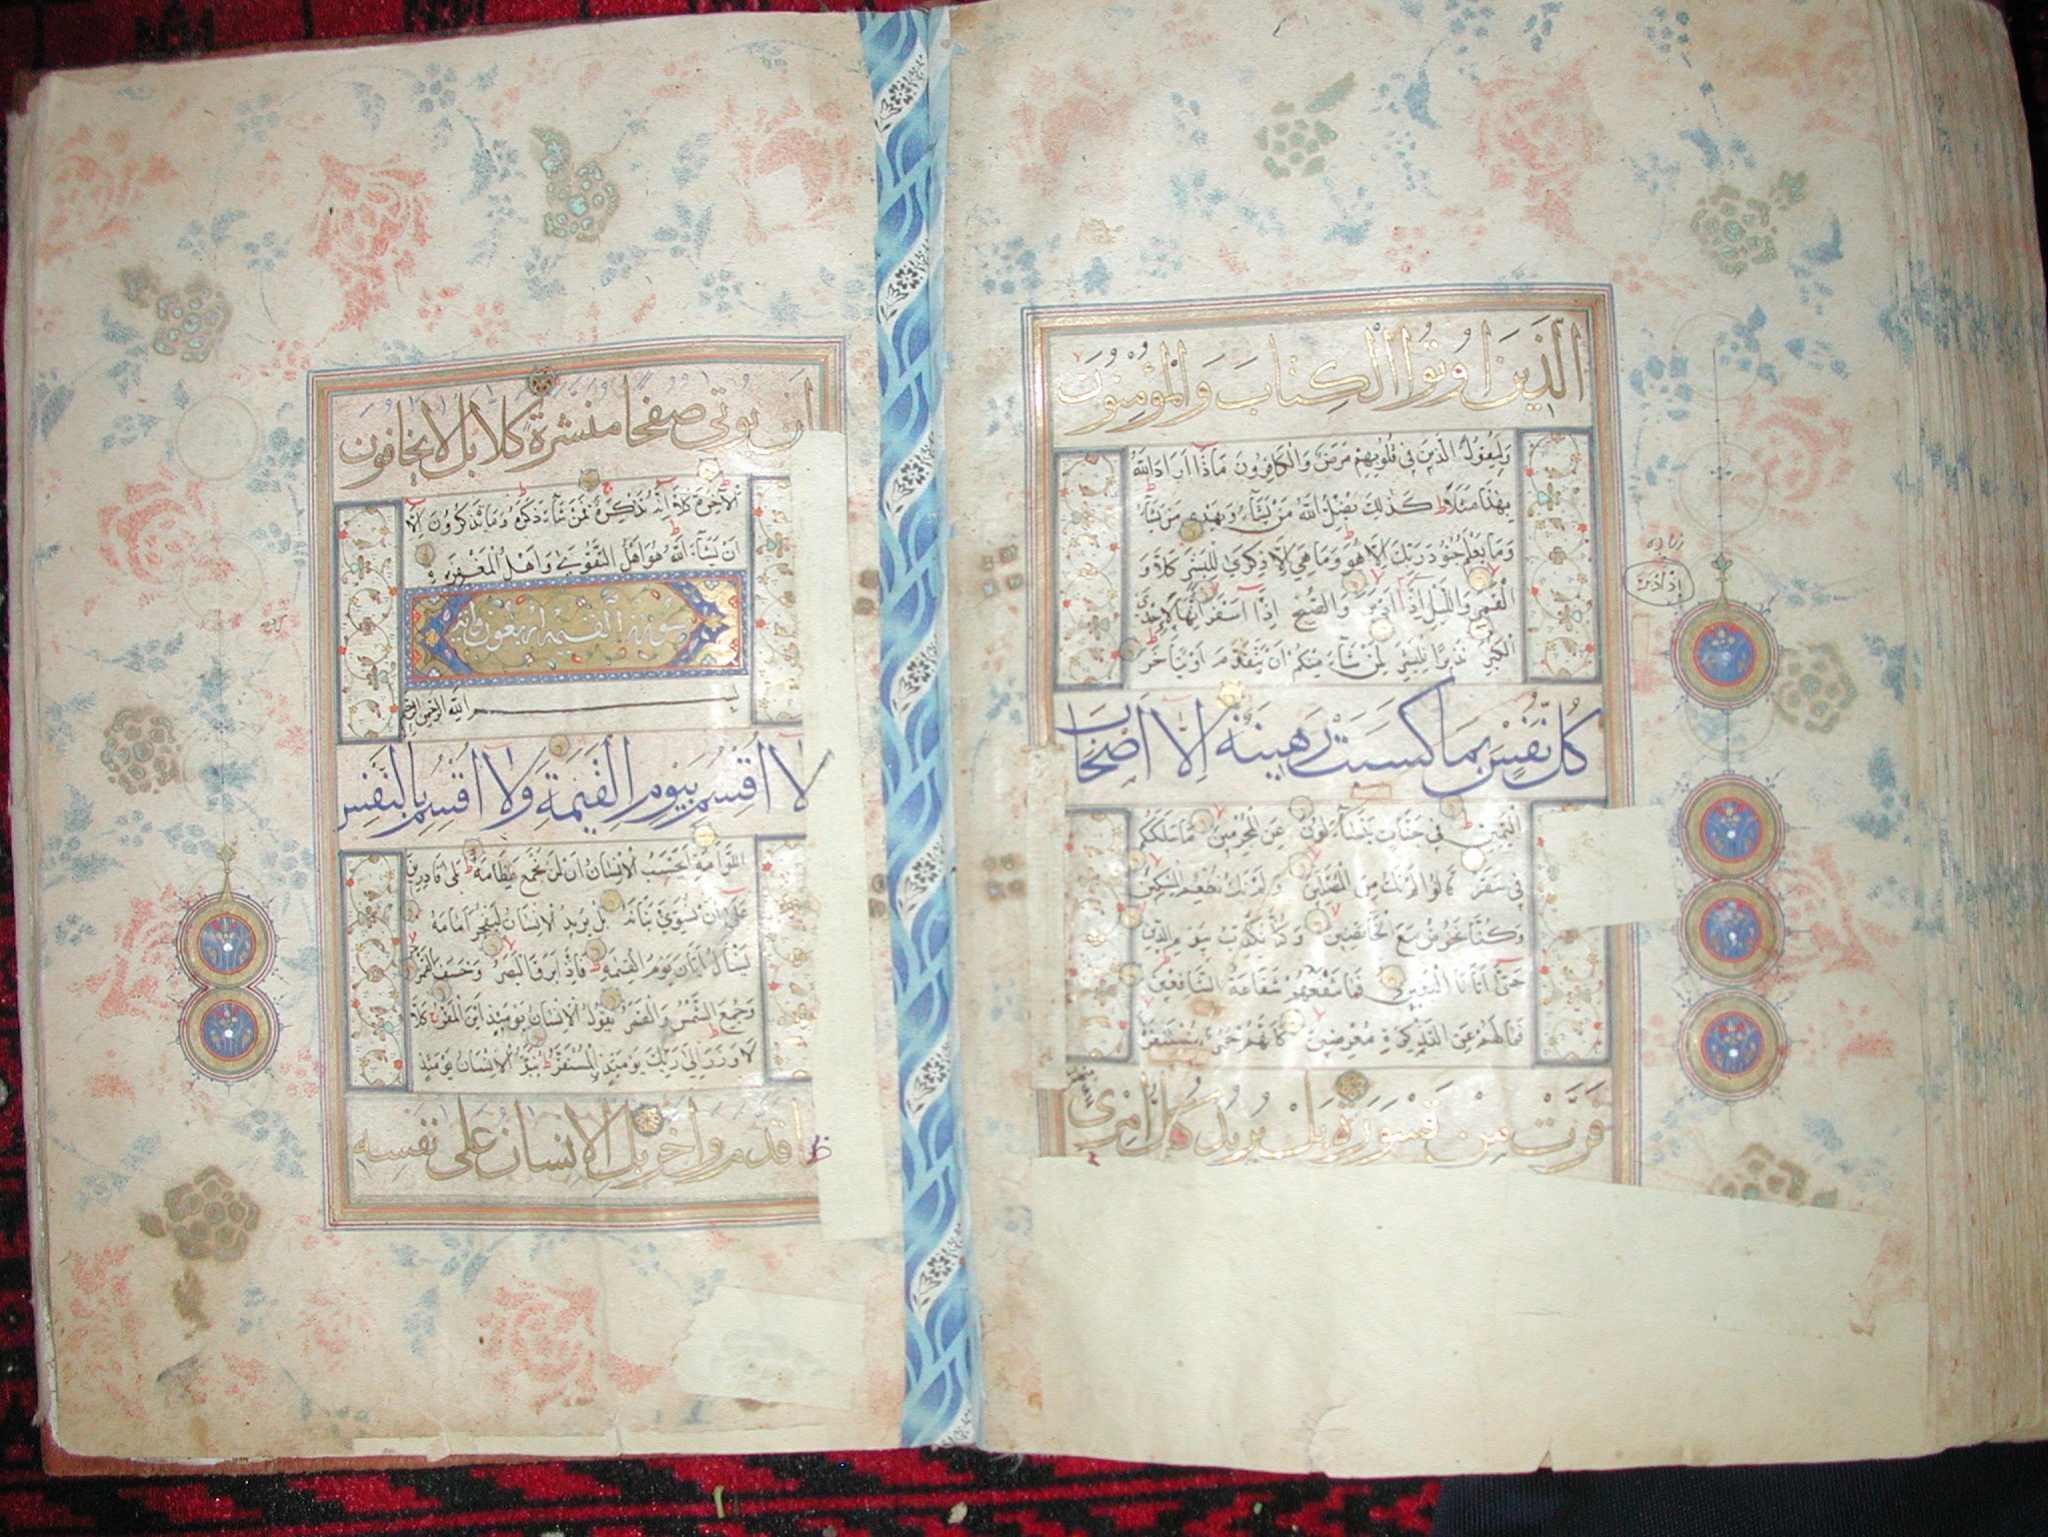 الَّذينَ اُوتُوا الْكِتابَ وَالْمُؤْمِنُونَ
وَلِيَقُولَ الَّذينَ في قُلُوبِهِمْ مَرَضٌ وَالْكافِرُونَ ماذا اَرادَ اللهُ
بِهٰذا مَثَلاً كَذٰلِكَ يُضِلُّ اللهُ مَنْ يَشاءُ وَيَهْدي مَنْ يَشاءُ
وَما يَعْلَمُ جُنُودَ رَبِّكَ اِلّا هُوَ وَما هِيَ اِلّا ذِكْرىٰ لِلْبَشَرِ كَلّا وَ
الْقَمَرِ وَاللَّيْلِ اِذا اَدْبَرَ وَالصُّبْحِ اِذا اَسْفَرَ اِنَّها لَاِحْدَى
الْكُبَرِ نَذيرًا لِلْبَشَرِ لِمَنْ شاءَ مِنْكُمْ اَنْ يَتَقَدَّمَ اَوْ يَتَاَخَّرَ
كُلُّ نَفْسٍ بِما كَسَبَتْ رَهينَةٌ اِلّا اَصْحابَ
الْيَمينِ في جَنّاتٍ يَتَساءَلُونَ عَنِ الْمُجْرِمينَ ما سَلَكَكُمْ
في سَقَرَ قالُوا لَمْ نَكُ مِنَ الْمُصَلّينَ وَلَمْ نَكُ نُطْعِمُ الْمِسْكينَ
وَكُنّا نَخُوضُ مَعَ الْخائِضينَ وَكُنّا نُكَذِّبُ بِيَوْمِ الدّينِ
حَتّىٰ اَتانَا الْيَقينُ فَما تَنْفَعُهُمْ شَفاعَةُ الشّافِعينَ
فَما لَهُمْ عَنِ التَّذْكِرَةِ مُعْرِضينَ كَاَنَّهُمْ حُمُرٌ مُسْتَنْفِرَةٌ
فَرَّتْ مِنْ قَسْوَرَةٍ بَلْ يُريدُ كُلُّ امْرِئٍ
اِذْ اَدْبَرَ
اَنْ يُؤْتىٰ صُحُفًا مُنَشَّرَةً كَلّا بَلْ لا يَخافُونَ
الْاٰخِرَةَ كَلّا اِنَّهُ تَذْكِرَةٌ فَمَنْ شاءَ ذَكَرَهُ وَما يَذْكُرُونَ اِلّا
اَنْ يَشاءَ اللهُ هُوَ اَهْلُ التَّقْوىٰ وَاَهْلُ الْمَغْفِرَةِ
سورة القيمة اربعون اية
بسم الله الرحمن الرحيم
لا اُقْسِمُ بِيَوْمِ الْقِيٰمَةِ وَلا اُقْسِمُ بِالنَّفْسِ
اللَّوّامَةِ اَيَحْسَبُ الْاِنْسانُ اَنْ لَنْ نَجْمَعَ عِظامَهُ بَلىٰ قادِرينَ
عَلىٰ اَنْ نُسَوِّيَ بَنانَهُ بَلْ يُريدُ الْاِنْسانُ لِيَفْجُرَ اَمامَهُ
يَسْاَلُ اَيّانَ يَوْمُ الْقِيٰمَةِ فَاِذا بَرِقَ الْبَصَرُ وَخَسَفَ الْقَمَرُ
وَجُمِعَ الشَّمْسُ وَالْقَمَرُ يَقُولُ الْاِنْسانُ يَوْمَئِذٍ اَيْنَ الْمَفَرُّ كَلّا
لا وَزَرَ اِلىٰ رَبِّكَ يَوْمَئِذٍ الْمُسْتَقَرُّ يُنَبَّؤُ الْاِنْسانُ يَوْمَئِذٍ
قَدَّمَ وَاَخَّرَ بَلِ الْاِنْسانُ عَلىٰ نَفْسِهِ